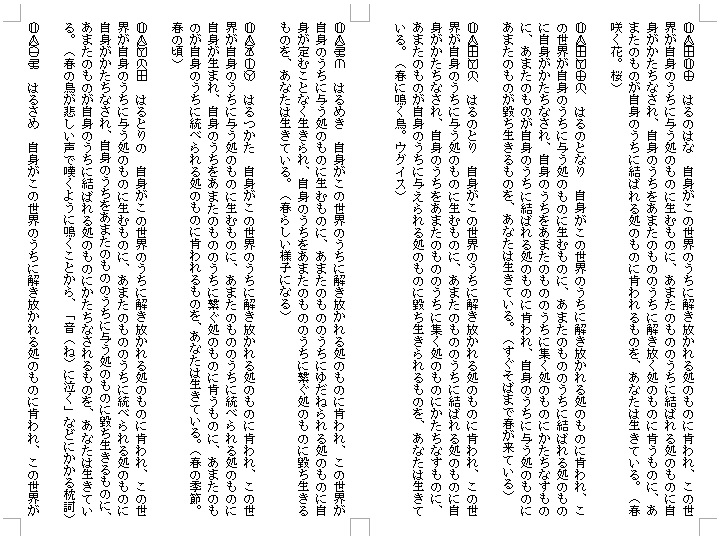 はるのはな　自身がこの世界のうちに解き放かれる処のものに肯われ、この世
界が自身のうちに与う処のものに生むものに、あまたのもののうちに結ばれる処のものに自
身がかたちなされ、自身のうちをあまたのもののうちに解き放く処のものに肯うものに、あ
またのものが自身のうちに結ばれる処のものに肯われるものを、あなたは生きている。（春
咲く花。桜）
はるのとなり　自身がこの世界のうちに解き放かれる処のものに肯われ、こ
の世界が自身のうちに与う処のものに生むものに、あまたのもののうちに結ばれる処のもの
に自身がかたちなされ、自身のうちをあまたのもののうちに集く処のものにかたちなすもの
に、あまたのものが自身のうちに結ばれる処のものに肯われ、自身のうちに与う処のものに
あまたのものが毀ち生きるものを、あなたは生きている。（すぐそばまで春が来ている）
はるのとり　自身がこの世界のうちに解き放かれる処のものに肯われ、この世
界が自身のうちに与う処のものに生むものに、あまたのもののうちに結ばれる処のものに自
身がかたちなされ、自身のうちをあまたのもののうちに集く処のものにかたちなすものに、
あまたのものが自身のうちに与えられる処のものに毀ち生きられるものを、あなたは生きて
いる。（春に鳴く鳥。ウグイス）
はるめき　自身がこの世界のうちに解き放かれる処のものに肯われ、この世界が
自身のうちに与う処のものに生むものに、あまたのもののうちにゆだねられる処のものに自
身が定むことなく生きられ、自身のうちをあまたのもののうちに繋ぐ処のものに毀ち生きる
ものを、あなたは生きている。（春らしい様子になる）
はるつかた　自身がこの世界のうちに解き放かれる処のものに肯われ、この世
界が自身のうちに与う処のものに生むものに、あまたのもののうちに統べられる処のものに
自身が生まれ、自身のうちをあまたのもののうちに繋ぐ処のものに肯うものに、あまたのも
のが自身のうちに統べられる処のものに肯われるものを、あなたは生きている。（春の季節。
春の頃）
はるとりの　自身がこの世界のうちに解き放かれる処のものに肯われ、この世
界が自身のうちに与う処のものに生むものに、あまたのもののうちに統べられる処のものに
自身がかたちなされ、自身のうちをあまたのもののうちに与う処のものに毀ち生きるものに、
あまたのものが自身のうちに結ばれる処のものにかたちなされるものを、あなたは生きてい
る。（春の鳥が悲しい声で嘆くように鳴くことから、「音（ね）に泣く」などにかかる枕詞）
はるさめ　自身がこの世界のうちに解き放かれる処のものに肯われ、この世界が